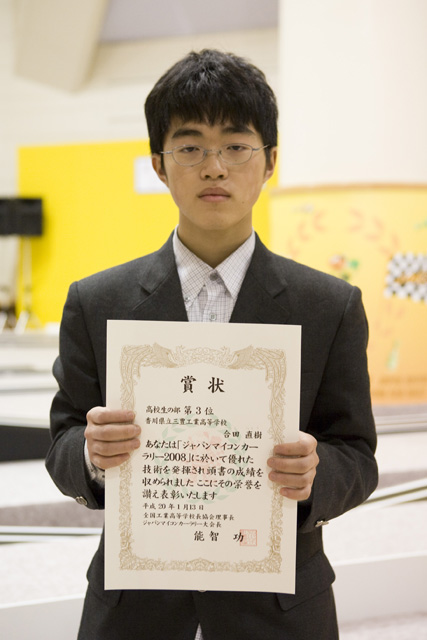 賞状
高校生の部 第3位
香川県立三豊工業高等学校
合田 直樹
あなたは「ジャパンマイコンカー
ラリー2008」に於いて優れた
技術を発揮され頭書の成績を
収められました ここにその栄誉を
讃え表彰いたします
平成20年1月13日
全国工業高等学校長協会理事長
ジャパンマイコンカーラリー大会長
能智 功